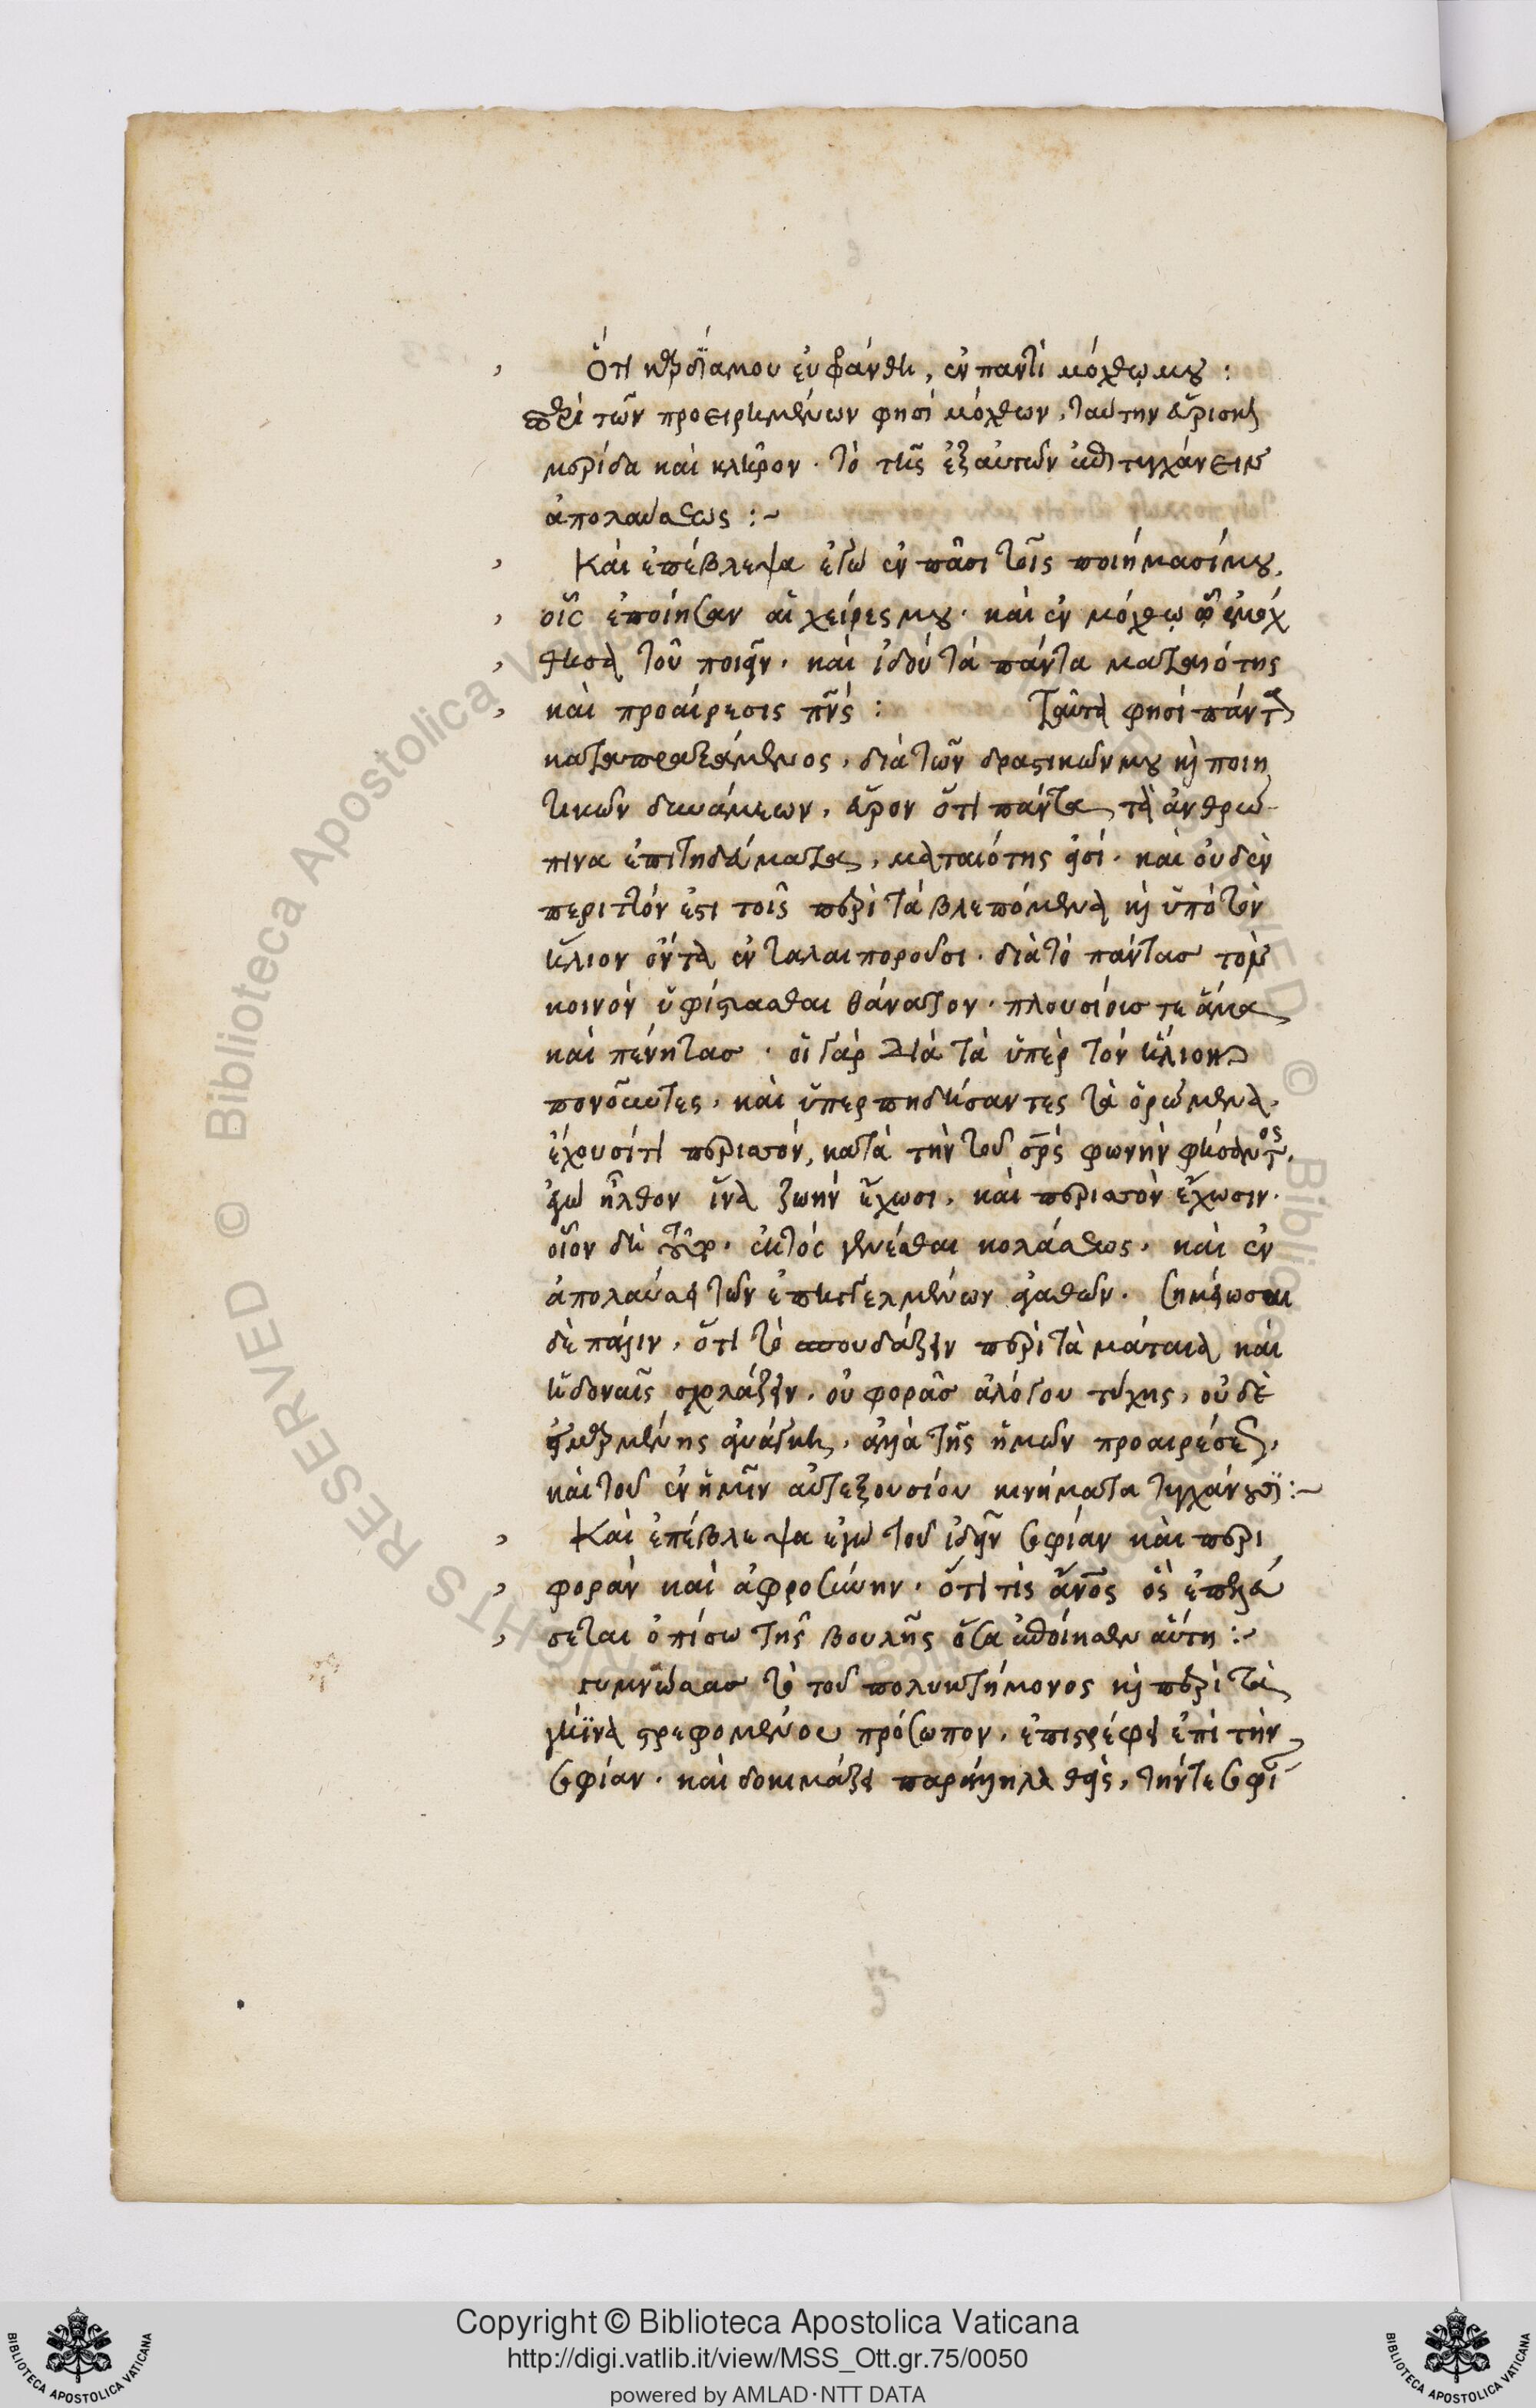 Ὅτι καρδία μου εὐφράνθη, ἐν παντὶ μόχθῳ μου :
περὶ τῶν προειρημένων φησὶ μόχθων, ταύτην εὕρισκε
μερίδα καὶ κλῆρον. τὸ τῆς ἐξ αὐτῶν ἐπιτυγχάνειν
ἀπολαύσεως :~
Καὶ ἐπέβλεψα ἐγὼ ἐν πᾶσι τοῖς ποιήμασί μου,
οἷς ἐποίησαν αἱ χεῖρές μου. καὶ ἐν μόχθῳ ᾧ ἐμόχ
θησα τοῦ ποιεῖν. καὶ ἰδοὺ τὰ πάντα ματαιότης
καὶ προαίρεσις πνς : Ταῦτα φησὶ πάντα
καταπραξάμενος, διὰ τῶν δραστικῶν μου καὶ ποιη
τικῶν δυνάμεων, εὗρον ὅτι πάντα τὰ ἀνθρώ
πινα ἐπιτηδεύματα, ματαιότης εἰσί. καὶ οὐδὲν
περιττόν ἐστι τοῖς περὶ τὰ βλεπόμενα καὶ ὑπὸ τὸν
ἥλιον ὄντα ἐνταλαιποροῦσι. διὰ τὸ πάντας τὸν
κοινὸν ὑφίστασθαι θάνατον. πλουσίους τε ἅμα
καὶ πένητας. οἱ γὰρ διὰ τὰ ὑπὲρ τὸν ἥλιον
πονοῦντες, καὶ ὑπερπηδήσαντες τὰ ὁρώμενα,
ἔχουσί τι περισσόν, κατὰ τὴν τοῦ σρς φωνὴν φήσαντος,
ἐγὼ ἦλθον ἵνα ζωὴν ἔχωσι, καὶ περισσὸν ἔχωσιν.
οἷον δὴ ἐκτὸς γενέσθαι κολάσεως, καὶ ἐν
ἀπολαύσει τῶν ἐπηγγελμένων ἀγαθῶν. σημείωσαι
δὲ πάλιν, ὅτι τὸ σπουδάζειν περὶ τὰ μάταια καὶ
ἡδοναῖς σχολάζειν, οὐ φορᾶς ἀλόγου τύχης, οὐδὲ
εἱμαρμένης ἀνάγκη, ἀλλὰ τῆς ἡμῶν προαιρέσεως,
καὶ τοῦ ἐν ἡμῖν αὐτεξουσίου κινήματα τυγχάνουσι :~
Καὶ ἐπέβλεψα ἐγὼ τοῦ ἰδεῖν σοφίαν καὶ περι
φορὰν καὶ ἀφροσύνην. ὅτι τίς ἄνος ὃς ἐπελεύ
σεται ὀπίσω τῆς βουλῆς ὅσα ἐποίησεν αὕτη :~
γυμνώσας τὸ τοῦ πολυκτήμονος καὶ περὶ τὰ
γήϊνα στρεφομένου πρόσωπον, ἐπιστρέφει ἐπὶ τὴν
σοφίαν. καὶ δοκιμάζει παράλληλα θεὶς, τήν τε σοφί
Copyright © Biblioteca Apostolica Vaticana
http://digi.vatlib.it/view/MSS_Ott.gr.75/0050
powered by AMLAD·NTT DATA